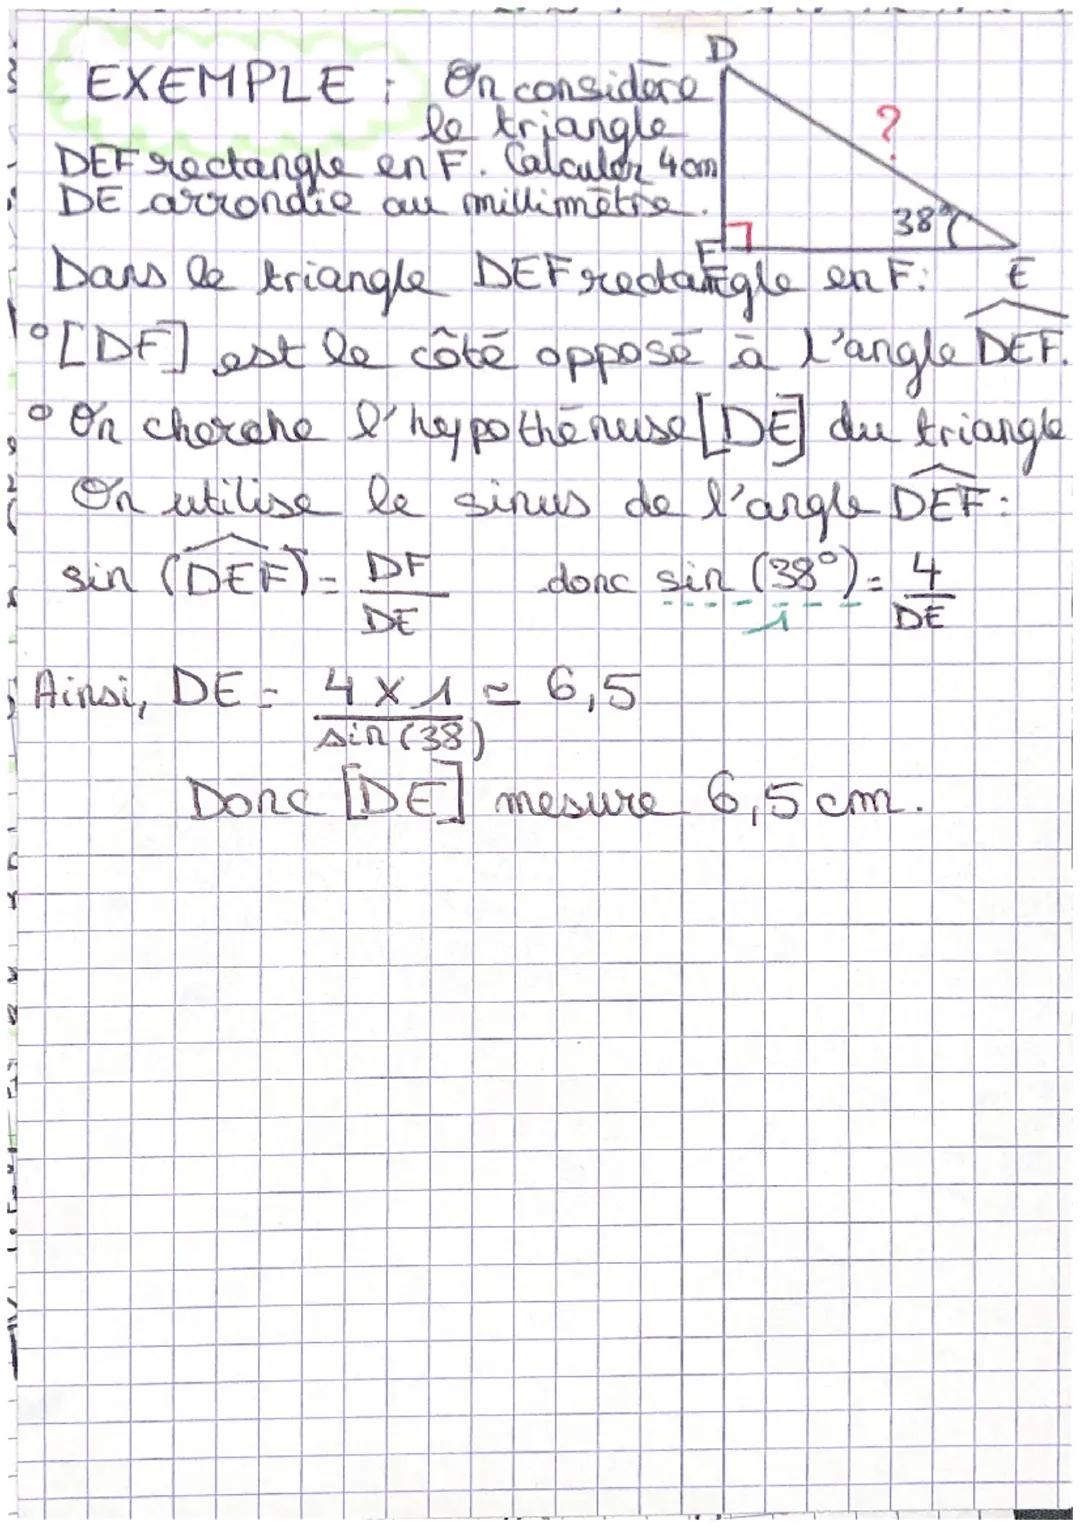 EXEMPLE : On considère
le triangle
DEF rectangle en F. Calculer
DE arrondie au millimètre.
D
?
4 cm
38°
F
E
Dans le triangle DEF rectangle en F:
° [DF] est le côté opposé à l'angle DEF.
° On cherche l'hypothénuse [DE] du triangle
On utilise le sinus de l'angle DEF:
sin (DEF) = DF/DE donc sin (38°) = 4/DE
1
Ainsi, DE = 4 × 1/sin(38) ≃ 6,5
Donc [DE] mesure 6,5 cm.